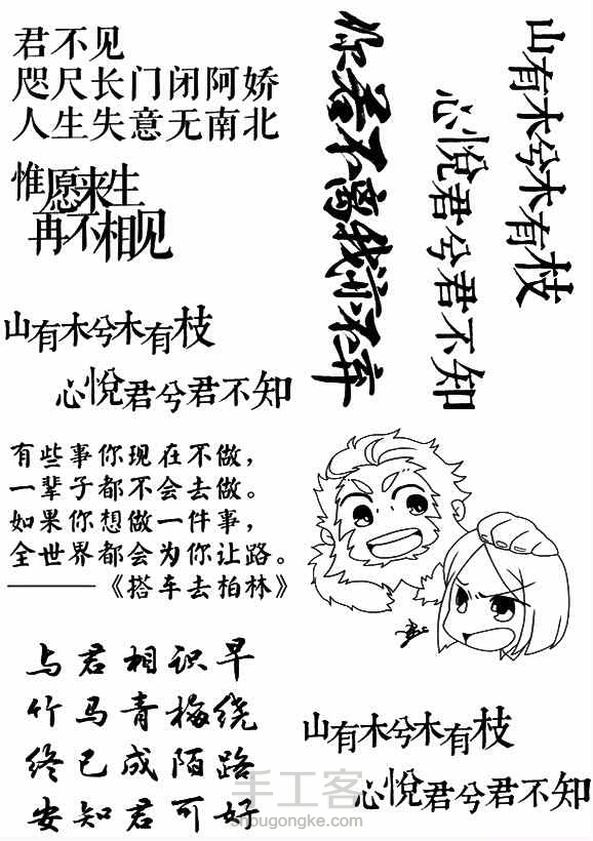 君不见
咫尺长门闭阿娇
人生失意无南北
惟愿来生
再不相见
你若不离我前不弃
山有木兮木有枝
心悦君兮君不知
山有木兮木有枝
心悦君兮君不知
有些事你现在不做，
一辈子都不会去做。
如果你想做一件事，
全世界都会为你让路。
———《搭车去柏林》
与君相识早
竹马青梅绕
终已成陌路
安知君可好
山有木兮木有枝
心悦君兮君不知
手工客
shougongke.com